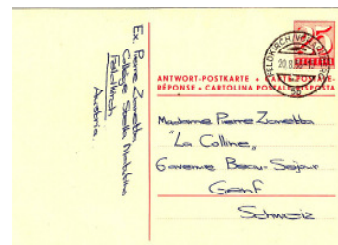 Ex. Pierre Zanetta
Collège Stella Matutina
Feldkirch
Austria.
25
HELVETIA
FELDKIRCH
20.8.
ANTWORT-POSTKARTE + CARTE POSTALE-
RÉPONSE + CARTOLINA POSTALE RISPOSTA
Madame Pierre Zanetta
"La Colline"
6 avenue Beau-Séjour
Genf
Schweiz